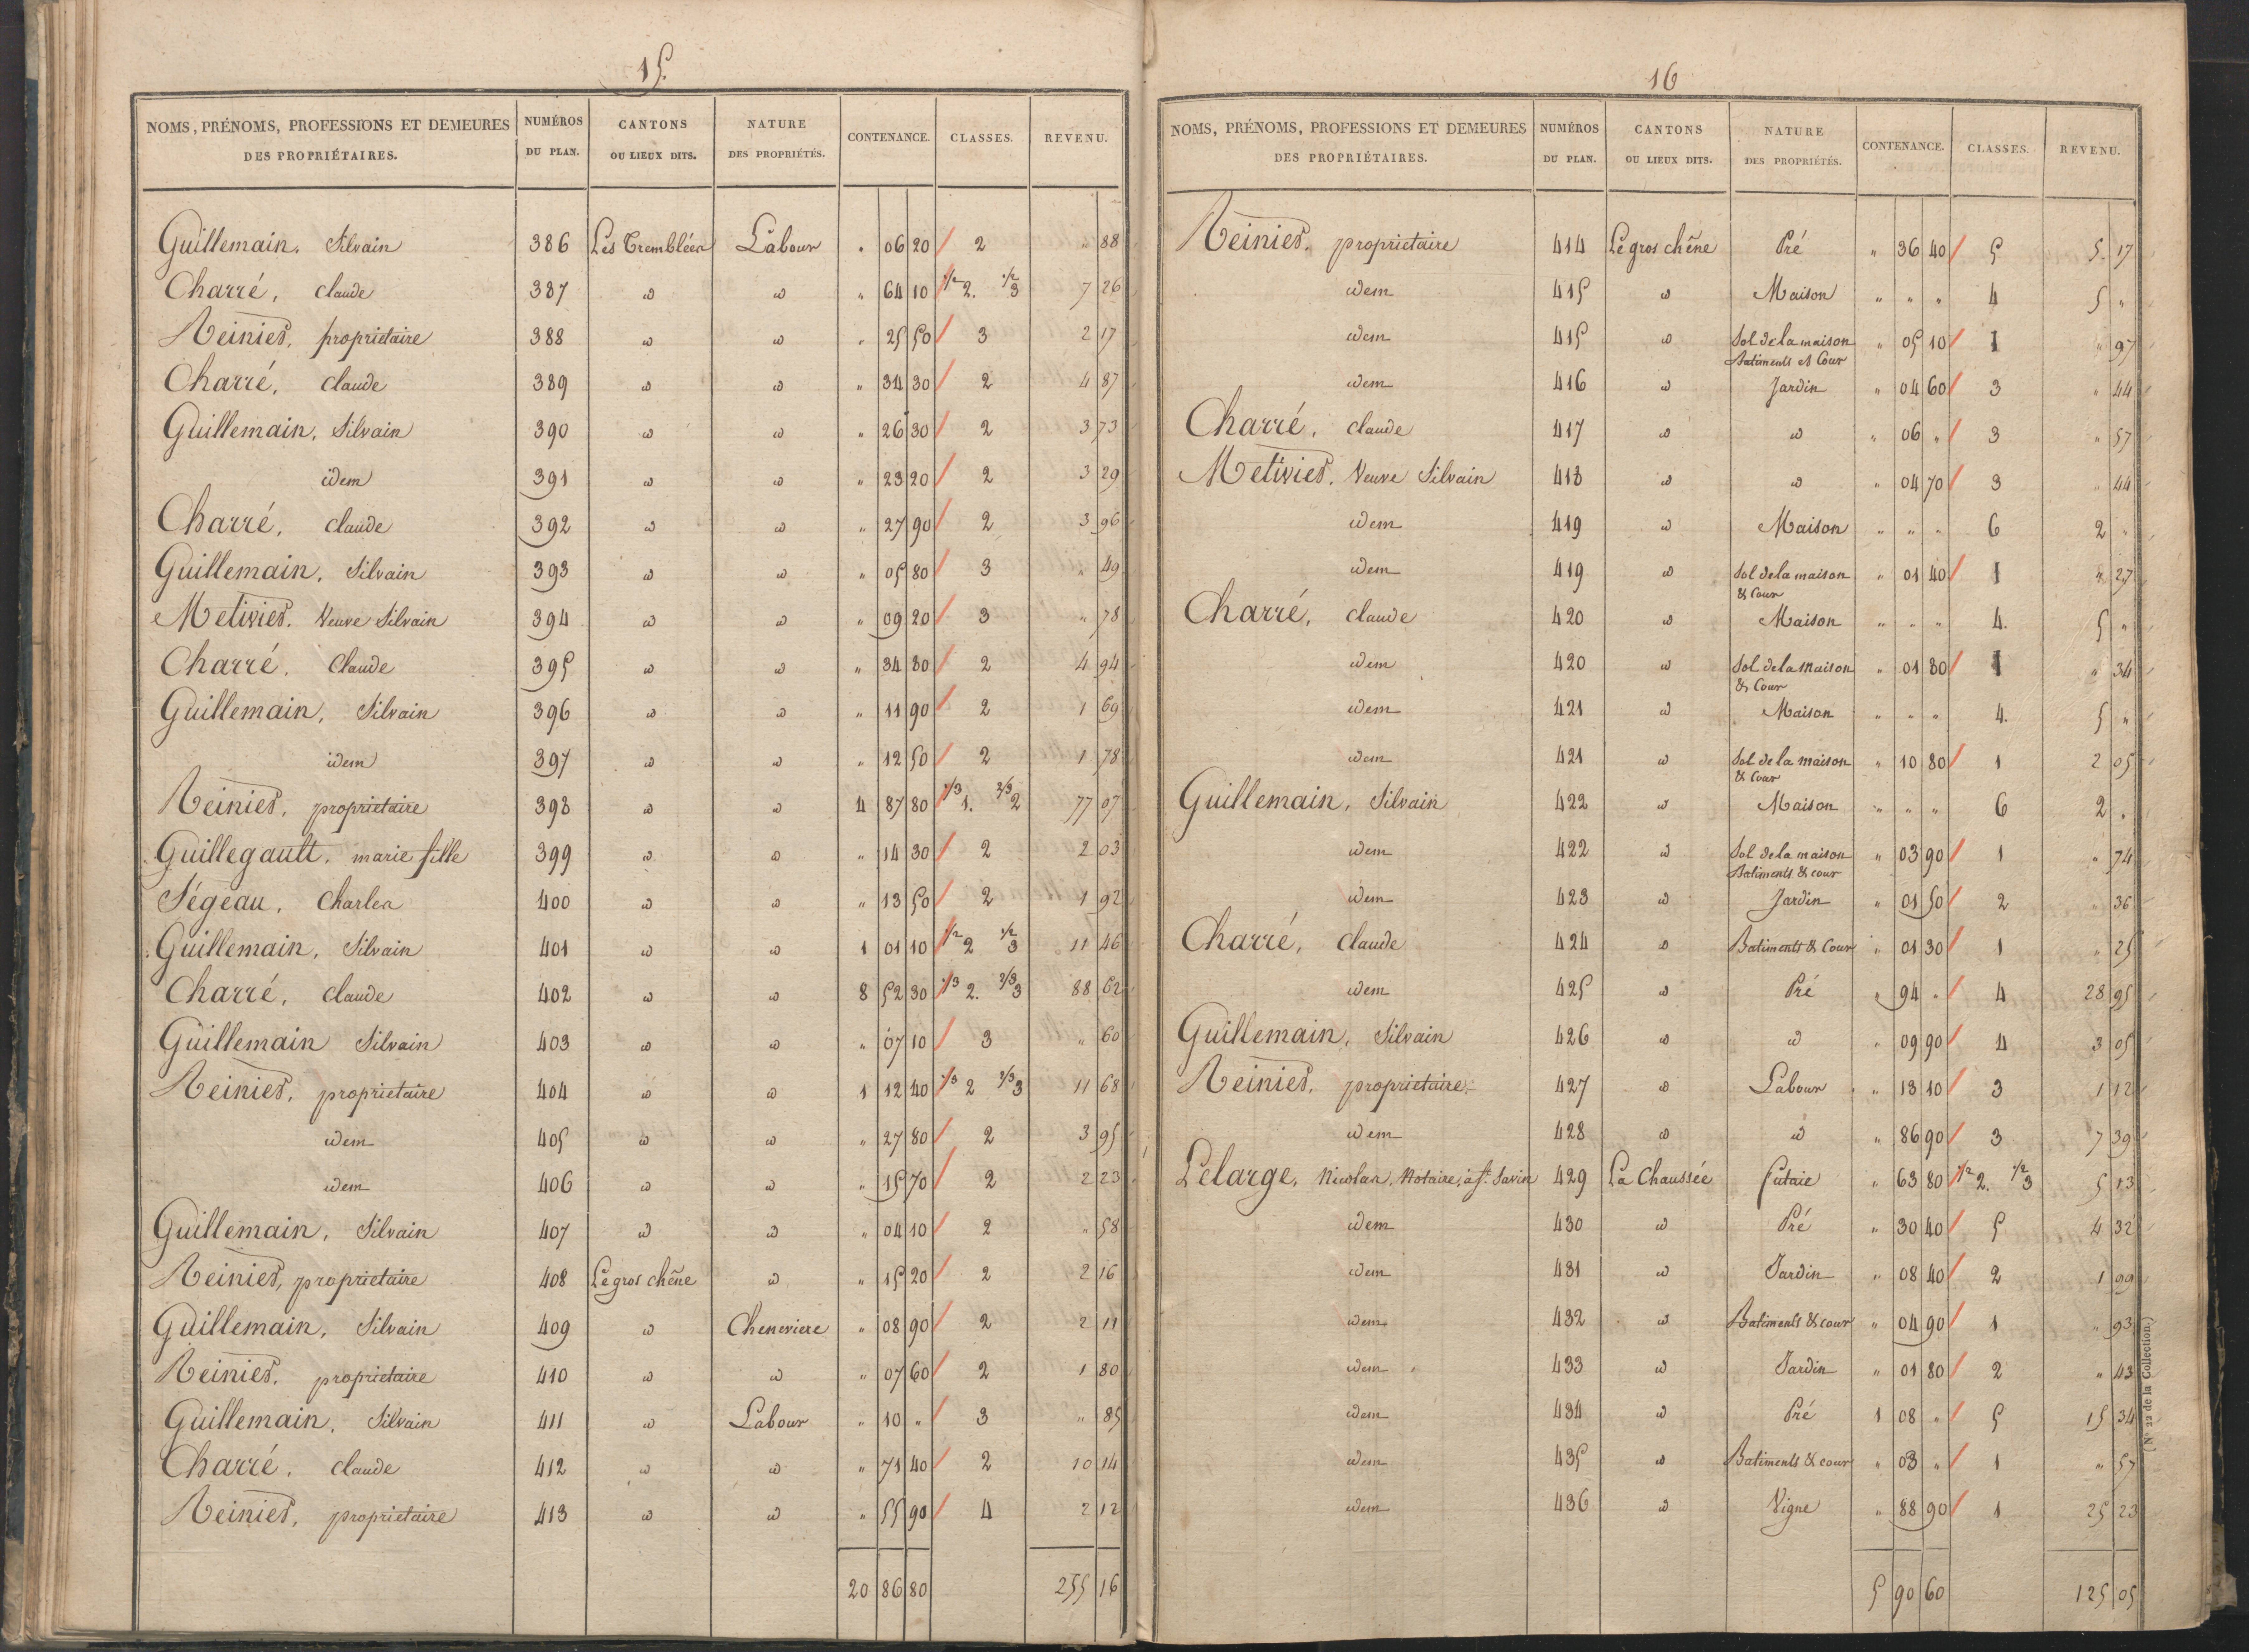 15.
NOMS, PRÉNOMS, PROFESSIONS ET DEMEURES DES PROPRIÉTAIRES. NUMÉROS DU PLAN. CANTONS OU LIEUX DITS. NATURE DES PROPRIÉTÉS. CONTENANCE. CLASSES. REVENU.
Guillemain, Silvain 386 Les Tremblées Labour " 06 20 2 " 88
Charré, claude 387 id id " 64 10 1/2 2. 1/2 3 7 26
Reinier, proprietaire 388 id id " 25 50 3 2 17
Charré, claude 389 id id " 34 30 2 4 87
Guillemain, Silvain 390 id id " 26 30 2 3 73
idem 391 id id " 23 20 2 3 29
Charré, claude 392 id id " 27 90 2 3 96
Guillemain, Silvain 393 id id " 05 80 3 " 49
Metivier, Veuve Silvain 394 id id " 09 20 3 " 78
Charré, Claude 395 id id " 34 80 2 4 94
Guillemain, Silvain 396 id id " 11 90 2 1 69
idem 397 id id " 12 50 2 1 78
Reinier, proprietaire 398 id id 4 87 80 1/3 1. 2/3 2 77 07
Guillegault, marie fille 399 id id " 14 30 2 2 03
Ségeau, Charles 400 id id " 13 50 2 1 92
Guillemain, Silvain 401 id id 1 01 10 1/2 2 1/2 3 11 46
Charré, claude 402 id id 8 52 30 1/3 2. 2/3 3 88 62
Guillemain Silvain 403 id id " 07 10 3 " 60
Reinier, proprietaire 404 id id 1 12 40 1/3 2 2/3 3 11 68
idem 405 id id " 27 80 2 3 95
idem 406 id id " 15 70 2 2 23
Guillemain, Silvain 407 id id " 04 10 2 " 58
Reinier, proprietaire 408 Le gros chêne id " 15 20 2 2 16
Guillemain, Silvain 409 id Cheneviere " 08 90 2 2 11
Reinier, proprietaire 410 id id " 07 60 2 1 80
Guillemain, Silvain 411 id Labour " 10 " 3 " 85
Charré, claude 412 id id " 71 40 2 10 14
Reinier, proprietaire 413 id id " 55 90 4 2 12
20 86 80 255 16
16
NOMS, PRÉNOMS, PROFESSIONS ET DEMEURES DES PROPRIÉTAIRES. NUMÉROS DU PLAN. CANTONS OU LIEUX DITS. NATURE DES PROPRIÉTÉS. CONTENANCE. CLASSES. REVENU.
Reinier, proprietaire 414 Le gros chêne Pré " 36 40 5 5 17
idem 415 id Maison " " " 4 5 "
idem 415 id Sol de la maison Batiments et Cour " 05 10 1 " 97
idem 416 id Jardin " 04 60 3 " 44
Charré, claude 417 id id " 06 " 3 " 57
Metivier, Veuve Silvain 418 id id " 04 70 3 " 44
idem 419 id Maison " " " 6 2 "
idem 419 id Sol de la maison & Cour " 01 40 1 " 27
Charré, claude 420 id Maison " " " 4. 5 "
idem 420 id Sol de la maison & Cour " 01 80 1 " 34
idem 421 id Maison " " " 4. 5 "
idem 421 id Sol de la maison & Cour " 10 80 1 2 05
Guillemain, Silvain 422 id Maison " " " 6 2 "
idem 422 id Sol de la maison Batiments & cour " 03 90 1 " 74
idem 423 id Jardin " 01 50 2 " 36
Charré, claude 424 id Batiments & Cour " 01 30 1 " 25
idem 425 id Pré " 94 " 4 28 95
Guillemain, Silvain 426 id id " 09 90 4 3 05
Reinier, proprietaire 427 id Labour " 13 10 3 1 12
idem 428 id id " 86 90 3 7 39
Lelarge, Nicolas, Notaire, à St. Savin 429 La Chaussée futaie " 63 80 1/2 2. 1/2 3 5 13
idem 430 id Pré " 30 40 5 4 32
idem 431 id Jardin " 08 40 2 1 99
idem 432 id Batiments & cour " 04 90 1 " 93
idem 433 id Jardin " 01 80 2 " 43
idem 434 id Pré 1 08 " 5 15 34
idem 435 id Batiments & cour " 03 " 1 " 57
idem 436 id Vigne " 88 90 1 25 23
5 90 60 125 05
(N° 22 de la Collection.)